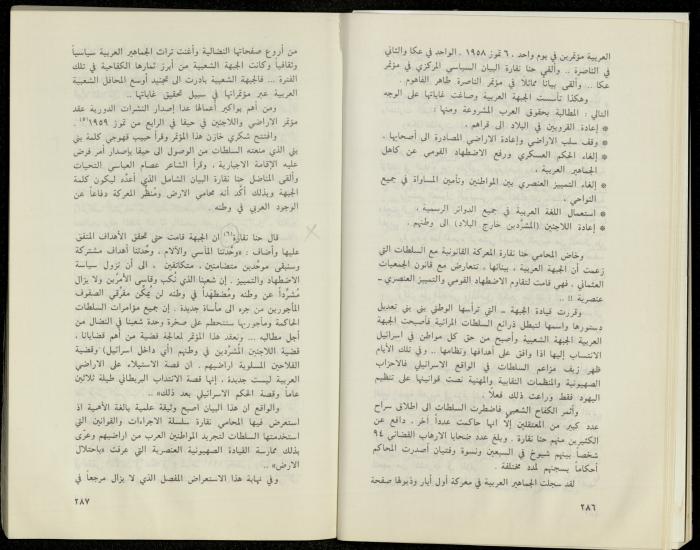 العربية مؤتمرين في يوم واحد ، ٦ تموز ١٩٥٨ . الواحد في عكا والثاني
في الناصرة .. وألقى حنا نقارة البيان السياسي المركزي في مؤتمر
عكا .. وألقى بياناً مماثلاً في مؤتمر الناصرة طاهر الفاهوم .
وهكذا تأسست الجبهة العربية وصاغت غاياتها على الوجه
التالي : المطالبة بحقوق العرب المشروعة ومنها :
* إعادة القرويين في البلاد الى قراهم .
* وقف سلب الاراضي وإعادة الاراضي المصادرة الى أصحابها .
* إلغاء الحكم العسكري ورفع الاضطهاد القومي عن كاهل
الجماهير العربية .
* إلغاء التمييز العنصري بين المواطنين وتأمين المساواة في جميع
النواحي .
* استعمال اللغة العربية في جميع الدوائر الرسمية .
* إعادة اللاجئين (المشرّدين خارج البلاد) الى وطنهم .
وخاض المحامي حنا نقارة المعركة القانونية مع السلطات التي
زعمت أن الجبهة العربية ، ببيانها ، تتعارض مع قانون الجمعيات
العثماني ، فهي قامت لتقاوم الاضطهاد القومي والتمييز العنصري ـ
عنصرية !! ..
وقررت قيادة الجبهة ـ التي ترأسها الوطني بني بني تعديل
دستورها واسمها لتبطل ذرائع السلطات المرائية فأصبحت الجبهة
العربية الجبهة الشعبية وأصبح من حق كل مواطن في اسرائيل
الانتساب إليها اذا وافق على أهدافها ونظامها .. وفي تلك الأيام
ظهر زيف مزاعم السلطات في الواقع الاسرائيلي فالاحزاب
الصهيونية والمنظمات النقابية والمهنية نصت قوانينها على تنظيم
اليهود فقط وراعت ذلك فعلاً .
وأثمر الكفاح الشعبي فاضطرت السلطات الى اطلاق سراح
عدد كبير من المعتقلين إلّا انها حاكمت عدداً آخر . دافع عن
الكثيرين منهم حنا نقارة . وبلغ عدد ضحايا الارهاب القضائي ٩٤
شخصاً بينهم شيوخ في السبعين ونسوة وفتيان أصدرت المحاكم
أحكاماً بسجنهم لمدد مختلفة .
لقد سجلت الجماهير العربية في معركة أول أيار وذيولها صفحة
٢٨٦
من أروع صفحاتها النضالية وأغنت تراث الجماهير العربية سياسياً
وثقافياً وكانت الجبهة الشعبية من أبرز ثمارها الكفاحية في تلك
الفترة ... فالجبهة الشعبية بادرت الى تجنيد أوسع المحافل الشعبية
العربية عبر مؤتمراتها في سبيل تحقيق غاياتها ..
ومن أهم بواكير أعمالها عدا إصدار النشرات الدورية عقد
مؤتمر الاراضي واللاجئين في حيفا في الرابع من تموز ١٩٥٩(٥) .
وافتتح شكري خازن هذا المؤتمر وقرأ حبيب قهوجي كلمة بني
بني الذي منعته السلطات من الوصول الى حيفا بإصدار أمر فرض
عليه الإقامة الاجبارية ، وقرأ الشاعر عصام العباسي التحيات
وألقى المناضل حنا نقارة البيان الشامل الذي أعدّه ليكون كلمة
الجبهة وبذلك أكّد أنه محامي الارض ومُنظّر المعركة دفاعاً عن
الوجود العربي في وطنه .
قال حنا نقارة(٦) ان الجبهة قامت حتى تحقق الأهداف المتفق
عليها وأضاف : «وحّدتنا المآسي والآلام . وحّدتنا أهداف مشتركة
وسنبقى موحّدين متضامنين ، متكاتفين ، الى أن تزول سياسة
الاضطهاد والتمييز . إن شعبنا الذي نُكب وقاسى الأمرّين ولا يزال
مُشرّداً عن وطنه ومُضطهداً في وطنه لن يُمكّن مفرّقي الصفوف
المأجورين من جره الى مأساة جديدة . إن جميع مؤامرات السلطات
الحاكمة ومأجوريها ستتحطم على صخرة وحدة شعبنا في النضال من
أجل مطالبه ... ونعقد هذا المؤتمر لمعالجة قضية من أهم قضايانا .
قضية اللاجئين المشرّدين في وطنهم (أي داخل اسرائيل) وقضية
الفلاحين المسلوبة اراضيهم . ان قصة الاستيلاء على الاراضي
العربية ليست جديدة ، إنها قصة الانتداب البريطاني طيلة ثلاثين
عاماً وقصة الحكم الاسرائيلي بعد ذلك» ..
والواقع ان هذا البيان أصبح وثيقة علمية بالغة الأهمية اذ
استعرض فيها المحامي نقارة سلسلة الاجراءات والقوانين التي
استخدمتها السلطات لتجريد المواطنين العرب من اراضيهم وعرّى
بذلك ممارسة القيادة الصهيونية العنصرية التي عرفت «باحتلال
الارض» ..
وفي نهاية هذا الاستعراض المفصل الذي لا يزال مرجعاً في
٢٨٧